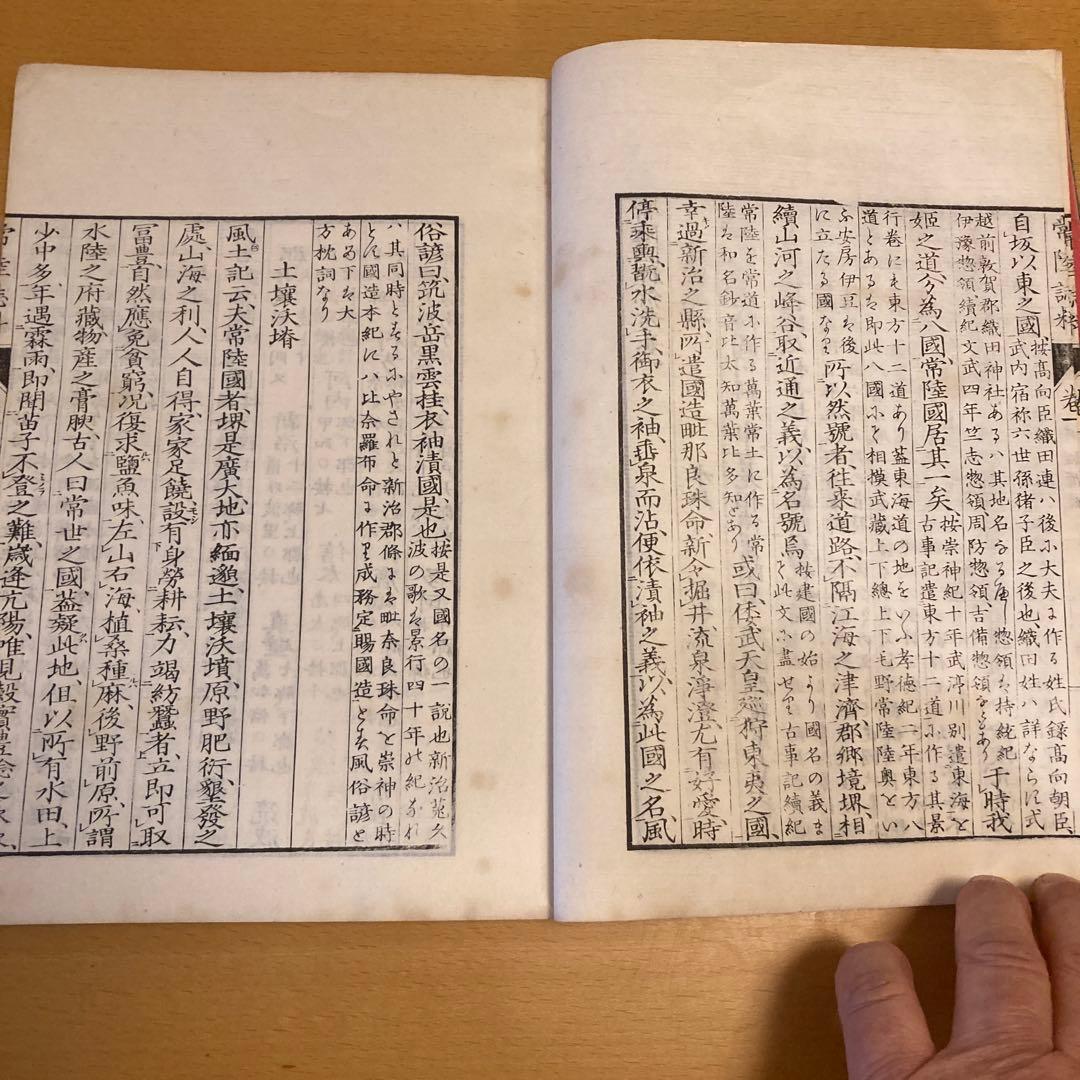 常陸誌料 卷一
自坂以東之國
按高向臣織田連ハ後ホ大夫に作る姓氏録高向朝臣
武内宿祢六世孫猪子臣之後也織田姓ハ詳ならに式
越前敦賀郡織田神社あるハ其地名なる 惣領は持統紀
伊豫惣領續紀文武四年竺志惣領周防惣領吉備惣領なとあり
于時我
姫之道分為八國常陸國居其一矣
按崇神紀十年武渟川別遣東海と
古事記遣東方十二道ホ作る其景
行卷にも東方十二道あり蓋東海道の地をいふ孝德紀二年東方八
道とあるは即此八國にて相模武藏上下總上下毛野常陸陸奥とい
ふ安房伊豆は後
に立たる國なり
所以然號者往来道路不隔江海之津濟郡郷境堺相
續山河之峰谷取近通之義以為名號焉
按建國の始より國名の義ま
そ此文ホ盡せり古事記續紀
常陸を常道ホ作る萬葉常土に作る常
陸は和名鈔音比太知萬葉比多知とあり
或曰倭武天皇巡狩東夷之國
幸過新治之縣所遣國造毗那良珠命新令掘井流泉淨澄尤有好愛時
停乘輿翫水洗手御衣之袖垂泉而沾便依漬袖之義以為此國之名風
俗諺曰筑波岳黒雲挂衣袖漬國是也
按是又國名の一說也新治菟久
波の歌は景行四十年の紀なれ
ハ其同時とするにやされと新治郡條には毗奈良珠命と崇神の時
とに國造本紀にハ比奈羅布命に作り成務定賜國造とは風俗諺と
ある下は大
方枕詞なり
土壤沃塉
風土記云夫常陸國者堺是廣大地亦緬邈土壤沃墳原野肥衍墾發之
處山海之利人人自得家家足饒設有身勞耕耘力竭紡蠶者立即可取
冨豊自然應免貧窮况復求鹽魚味左山右海植桑種麻後野前原所謂
水陸之府藏物產之膏腴古人曰常世之國葢疑此地但以所有水田上
少中多年遇霖雨即聞苗子不登之難歳逢亢陽唯見穀實豊